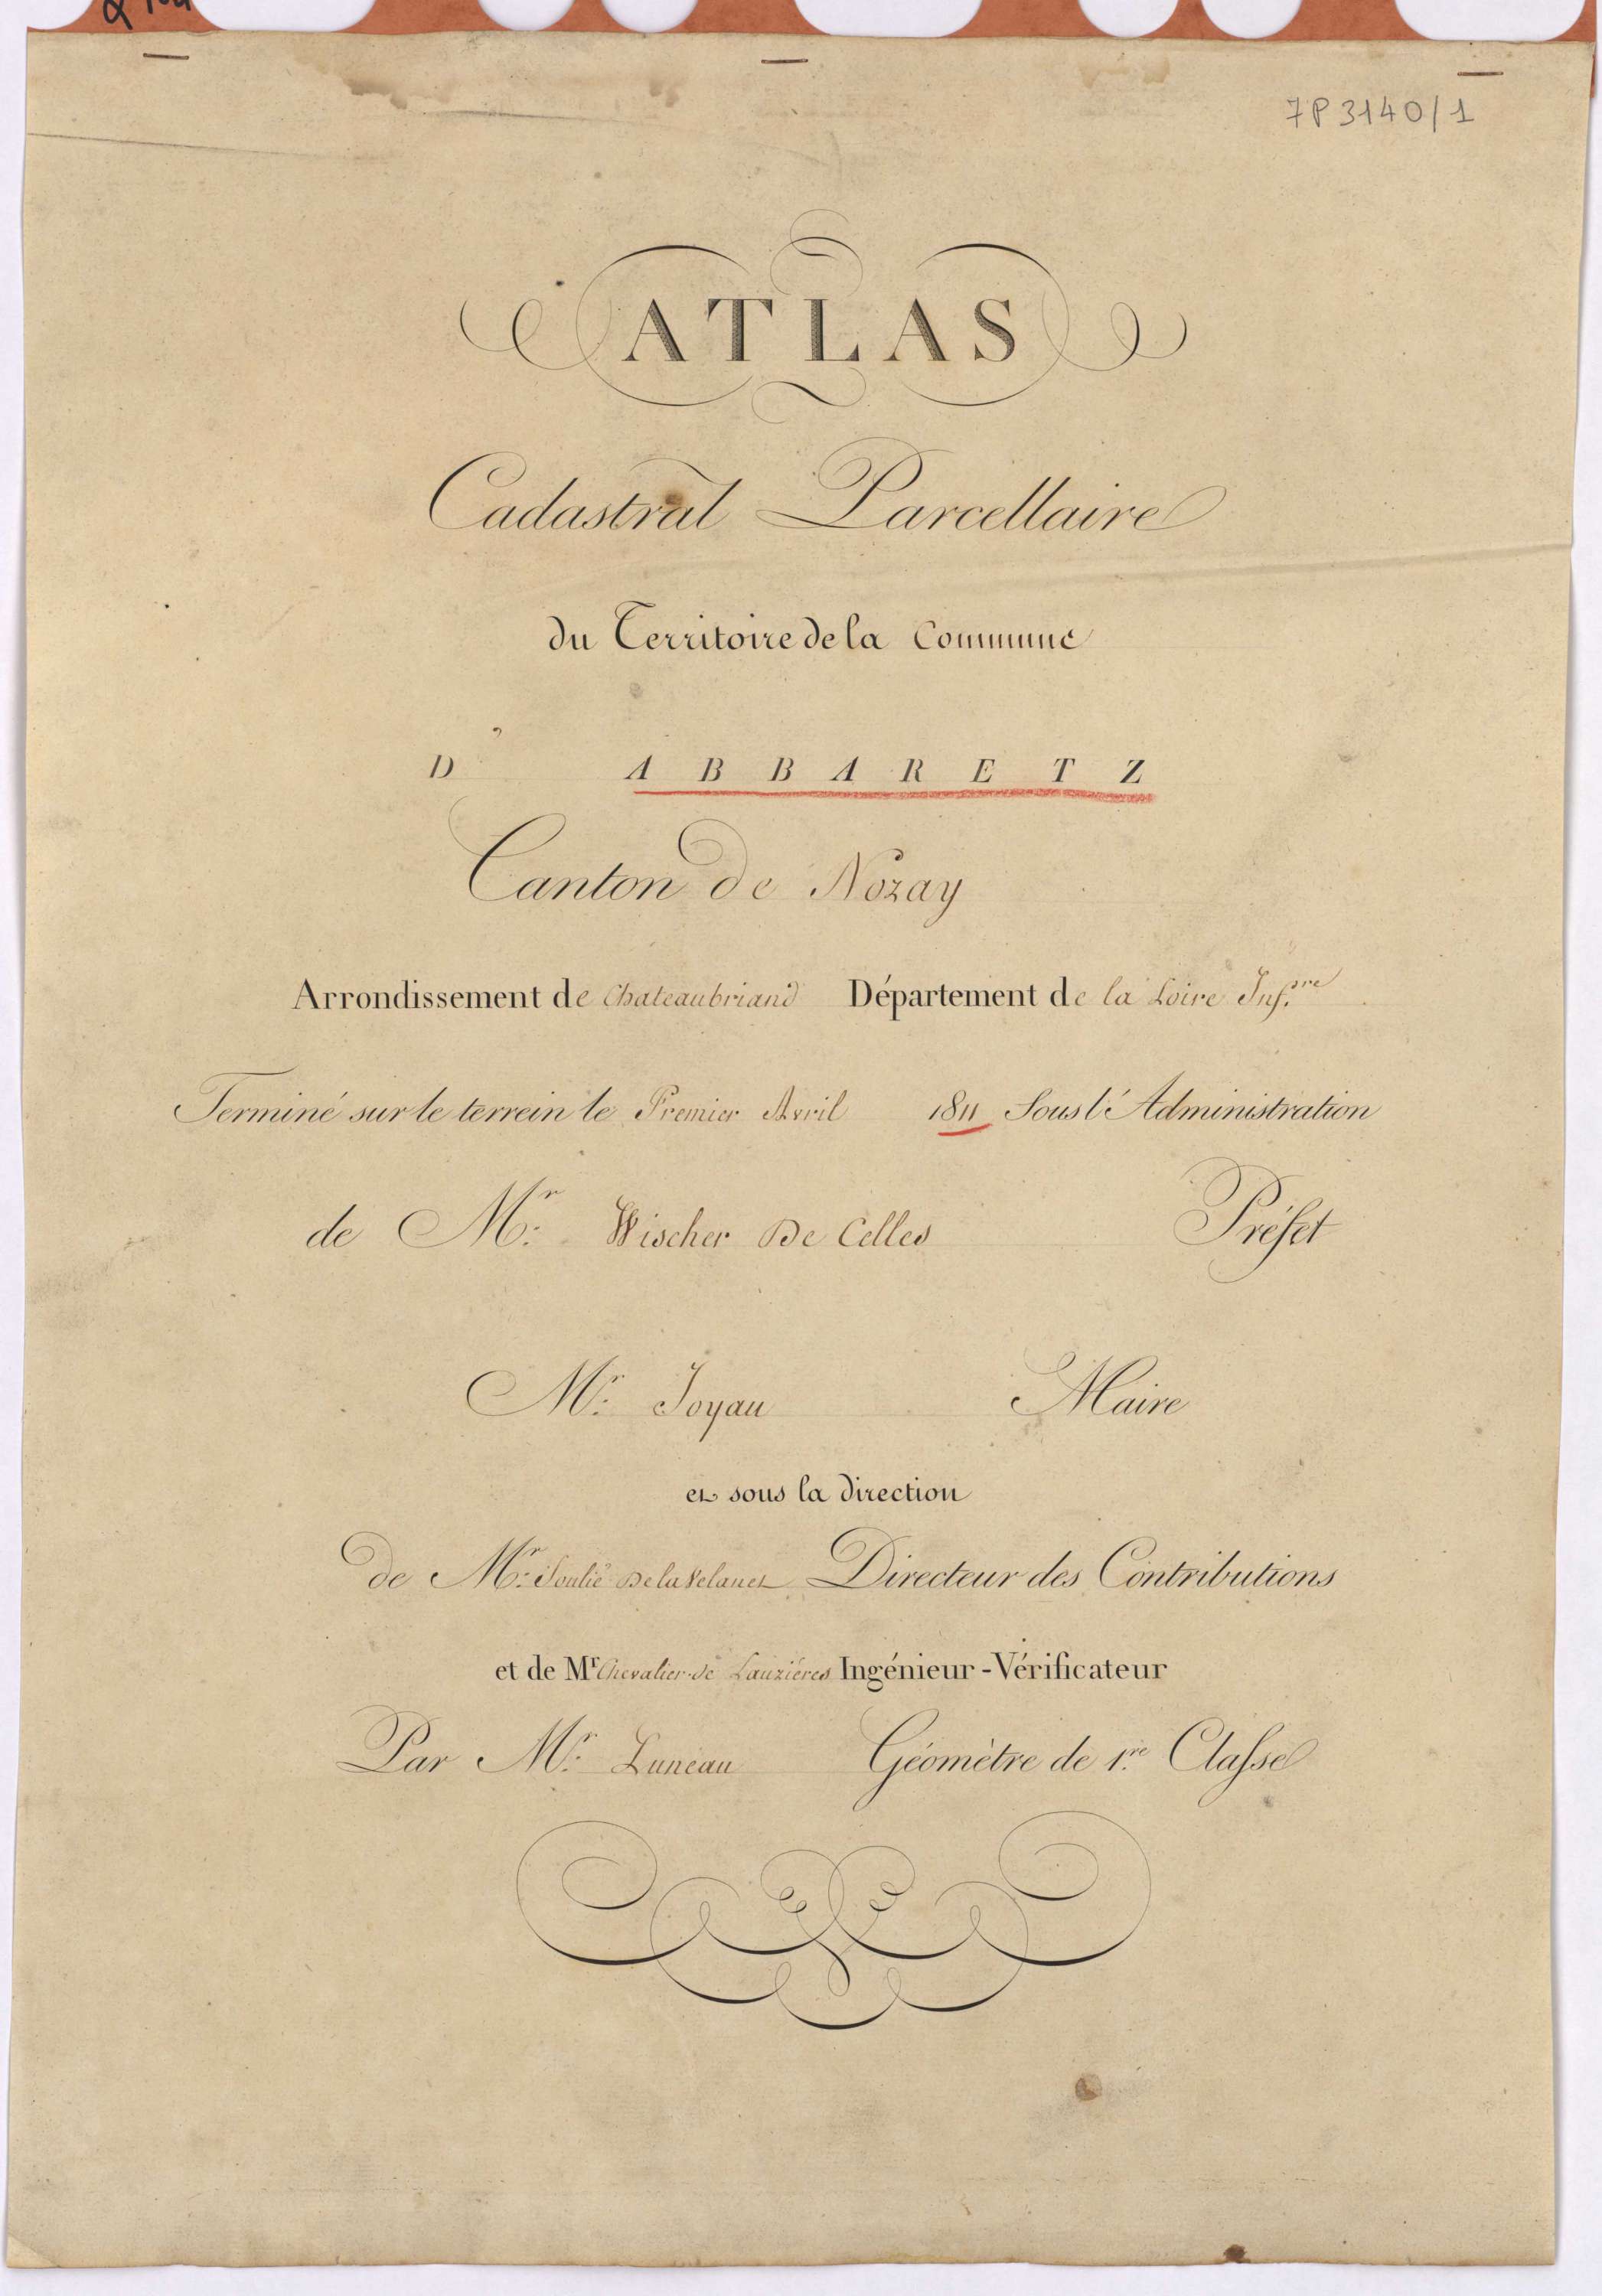 7P 3140/1
ATLAS
Cadastral Parcellaire
du Territoire de la Commune
D' ABBARETZ
Canton de Nozay
Arrondissement de Chateaubriand Département de la Loire Inf.re
Terminé sur le terrein le Premier Avril 1811 Sous l'Administration
de Mr. Wischer De Celles Préfet
Mr. Joyau Maire
et sous la direction
de Mr. Soulié De la Velanet Directeur des Contributions
et de Mr Chevalier de Lauziéres Ingénieur-Vérificateur
Par Mr. Luneau Géomètre de 1.re Classe